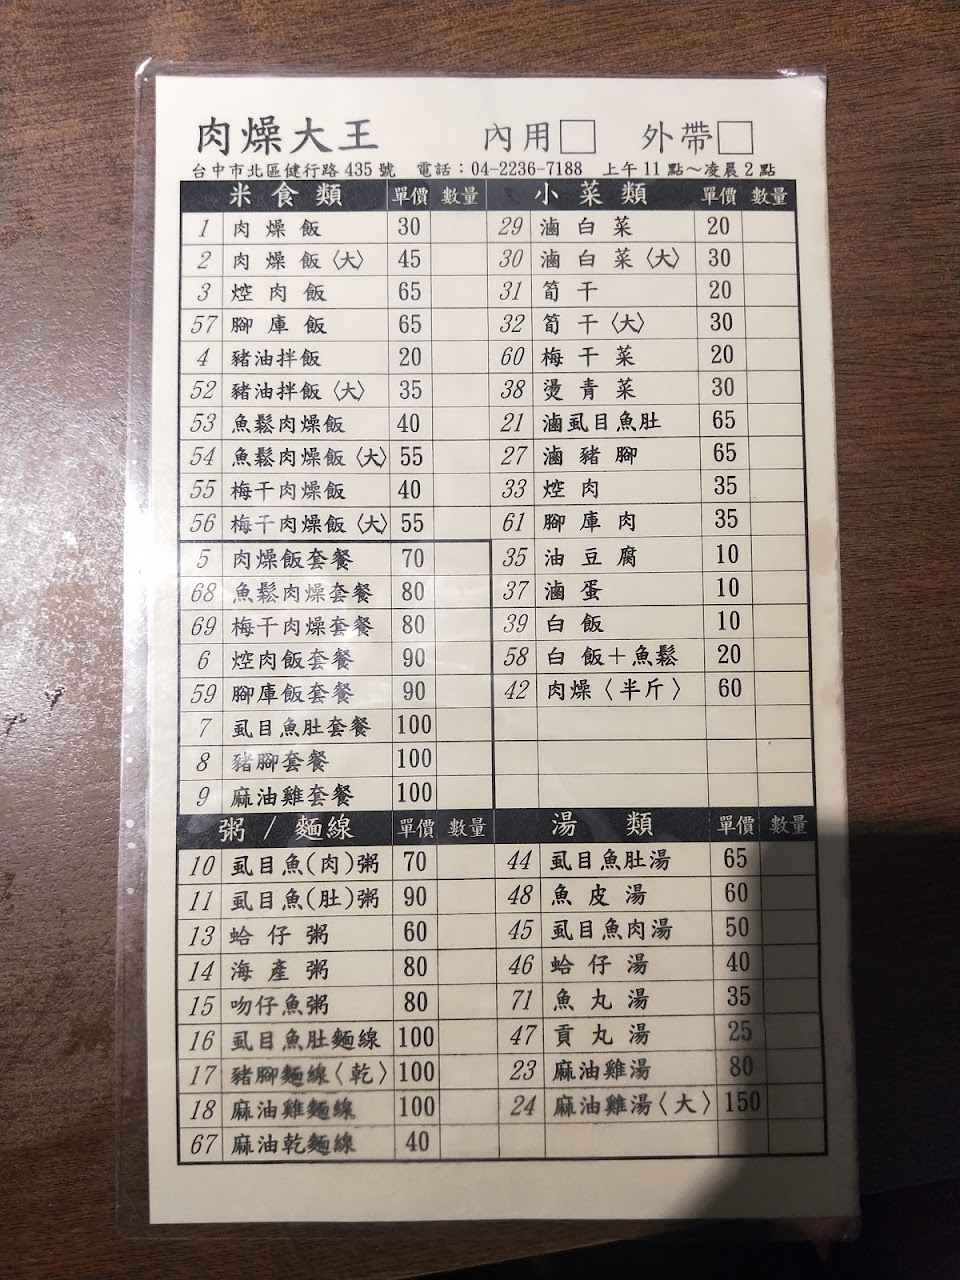 肉燥大王 內用□ 外帶□
台中市北區健行路 435 號 電話：04-2236-7188 上午 11 點～凌晨 2 點
米食類 單價 數量
1 肉燥飯 30
2 肉燥飯〈大〉 45
3 焢肉飯 65
57 腳庫飯 65
4 豬油拌飯 20
52 豬油拌飯〈大〉 35
53 魚鬆肉燥飯 40
54 魚鬆肉燥飯〈大〉 55
55 梅干肉燥飯 40
56 梅干肉燥飯〈大〉 55
5 肉燥飯套餐 70
68 魚鬆肉燥套餐 80
69 梅干肉燥套餐 80
6 焢肉飯套餐 90
59 腳庫飯套餐 90
7 虱目魚肚套餐 100
8 豬腳套餐 100
9 麻油雞套餐 100
小菜類 單價 數量
29 滷白菜 20
30 滷白菜〈大〉 30
31 筍干 20
32 筍干〈大〉 30
60 梅干菜 20
38 燙青菜 30
21 滷虱目魚肚 65
27 滷豬腳 65
33 焢肉 35
61 腳庫肉 35
35 油豆腐 10
37 滷蛋 10
39 白飯 10
58 白飯＋魚鬆 20
42 肉燥〈半斤〉 60
粥 / 麵線 單價 數量
10 虱目魚(肉)粥 70
11 虱目魚(肚)粥 90
13 蛤仔粥 60
14 海產粥 80
15 吻仔魚粥 80
16 虱目魚肚麵線 100
17 豬腳麵線〈乾〉 100
18 麻油雞麵線 100
67 麻油乾麵線 40
湯類 單價 數量
44 虱目魚肚湯 65
48 魚皮湯 60
45 虱目魚肉湯 50
46 蛤仔湯 40
71 魚丸湯 35
47 貢丸湯 25
23 麻油雞湯 80
24 麻油雞湯〈大〉 150